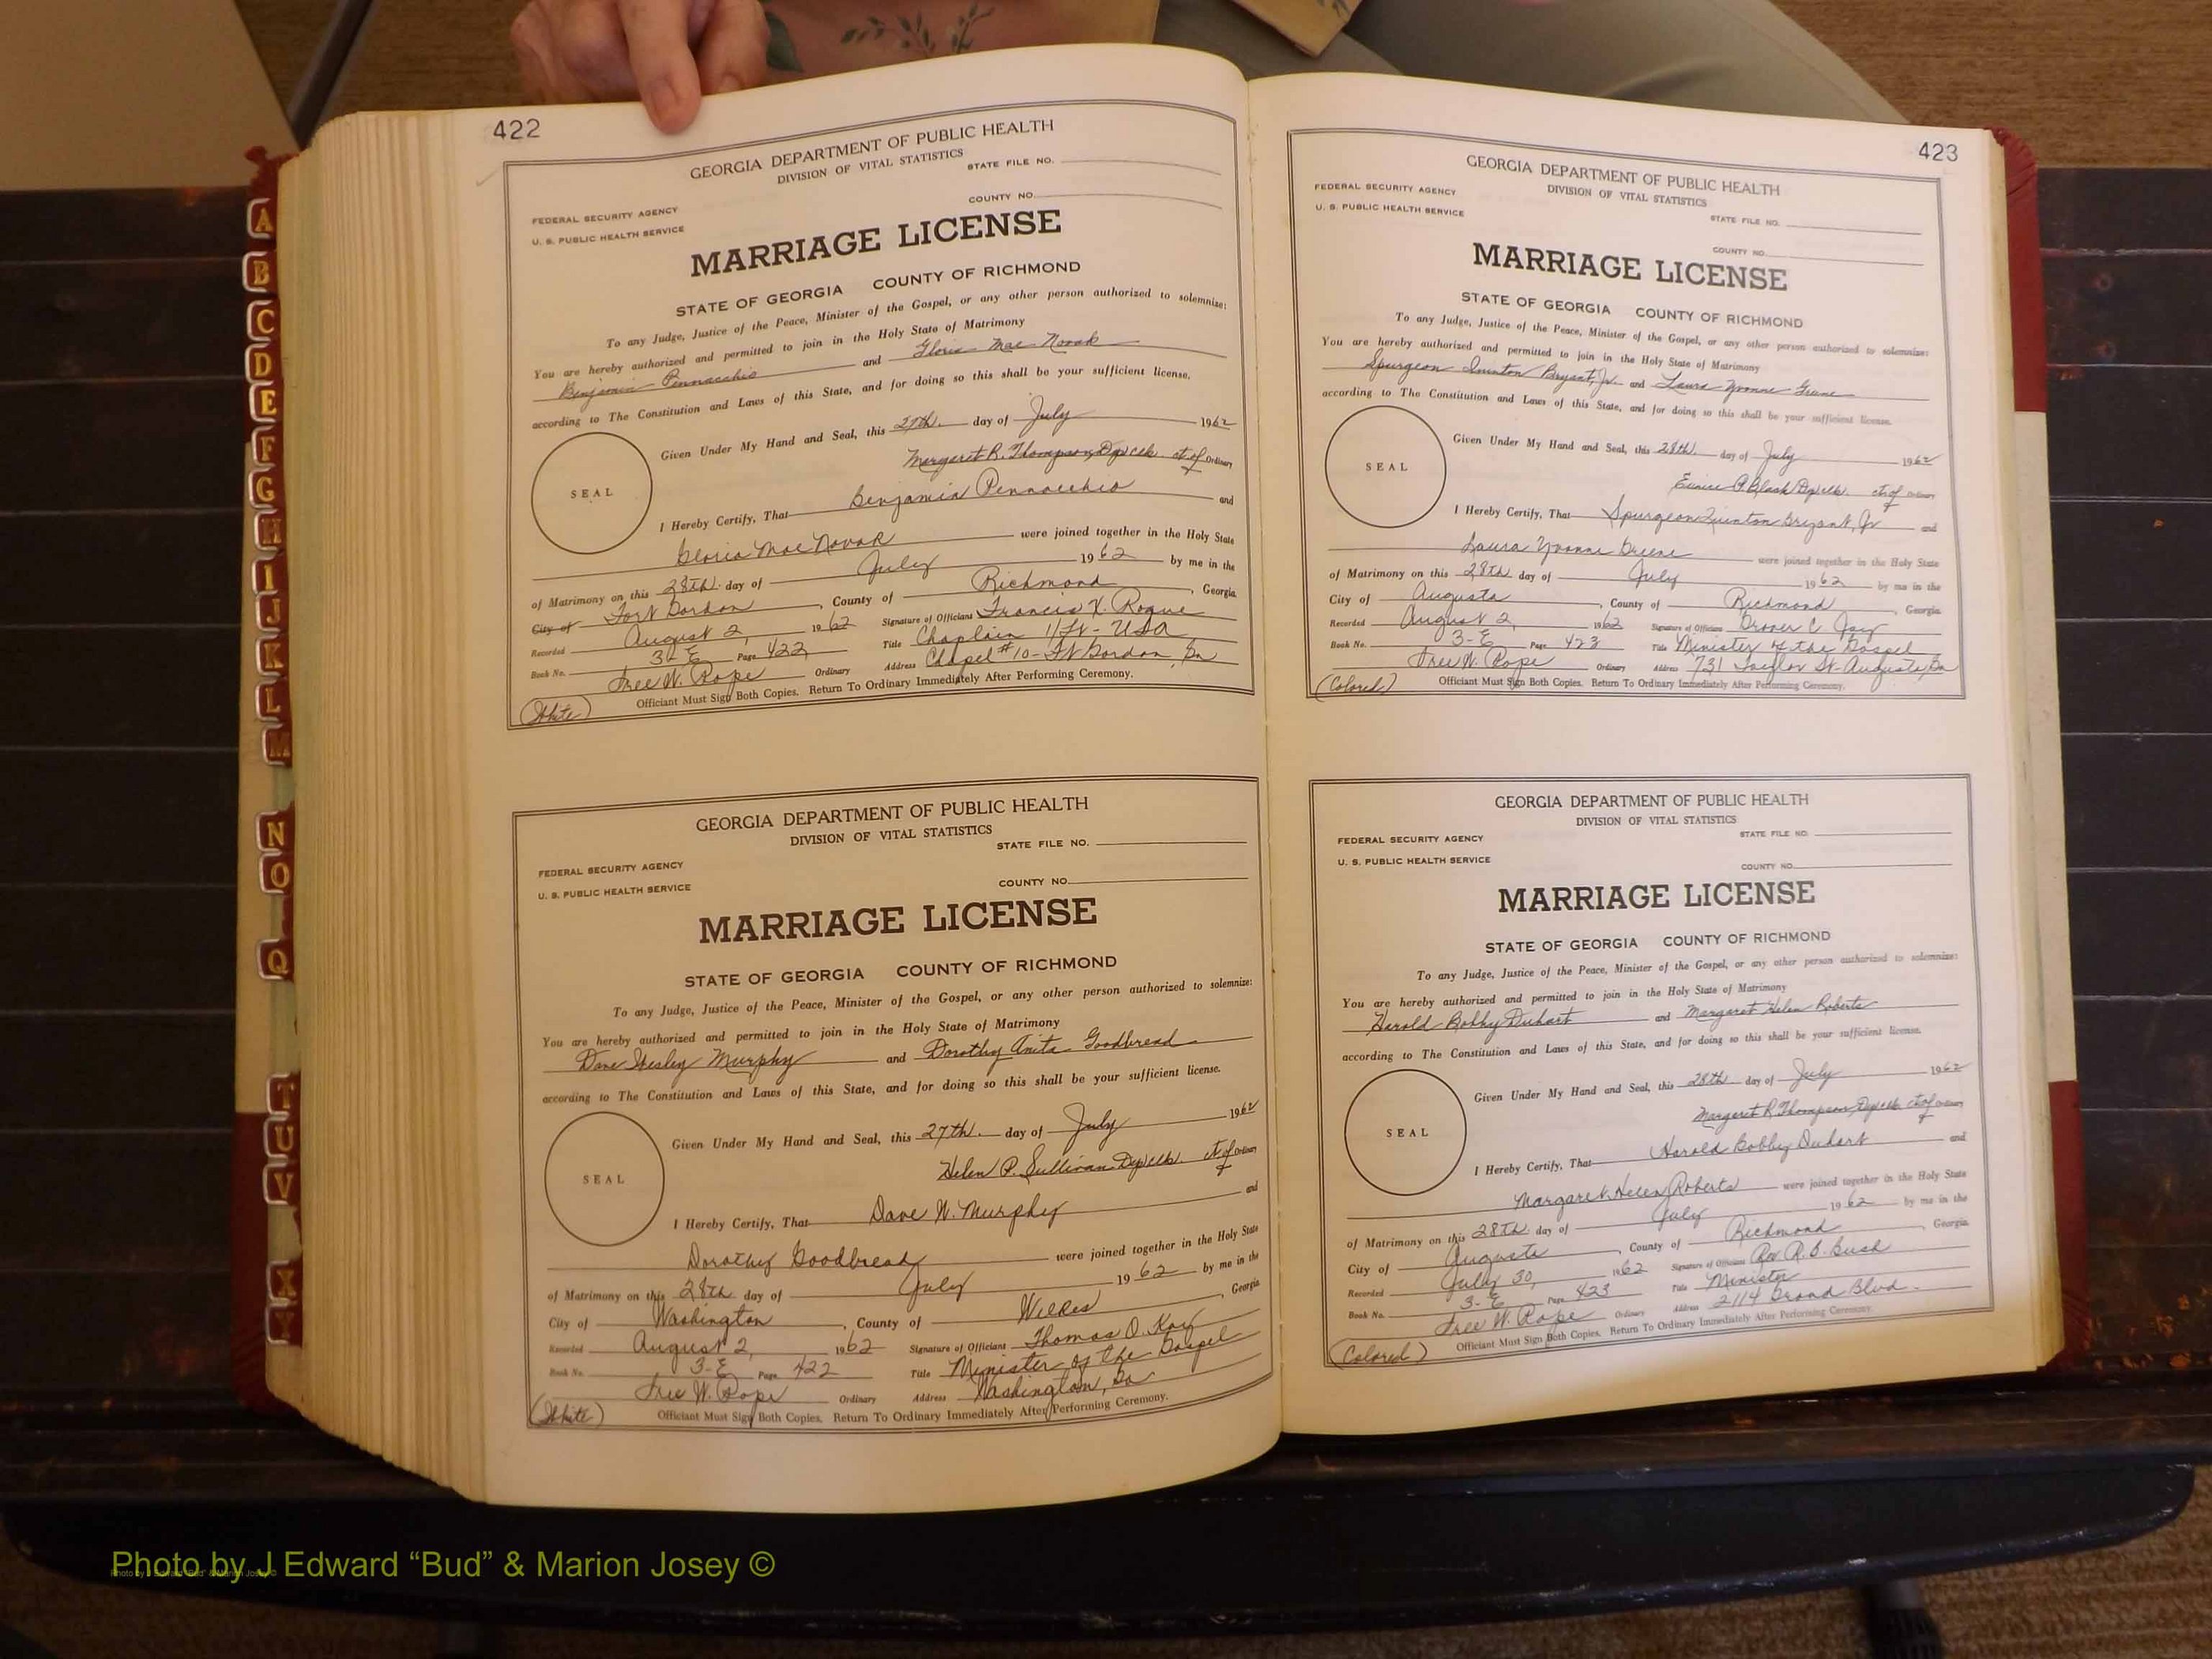 422
GEORGIA DEPARTMENT OF PUBLIC HEALTH
DIVISION OF VITAL STATISTICS
STATE FILE NO.
COUNTY NO.
FEDERAL SECURITY AGENCY
U. S. PUBLIC HEALTH SERVICE
MARRIAGE LICENSE
STATE OF GEORGIA COUNTY OF RICHMOND
To any Judge, Justice of the Peace, Minister of the Gospel, or any other person authorized to solemnize:
You are hereby authorized and permitted to join in the Holy State of Matrimony
Benjamin Pennacchio and Gloria Mae Novak
according to The Constitution and Laws of this State, and for doing so this shall be your sufficient license.
Given Under My Hand and Seal, this 27th. day of July 1962
Margaret R. Thompson, Dep clk. ct of Ordinary
SEAL
I Hereby Certify, That Benjamin Pennacchio and
Gloria Mae Novak were joined together in the Holy State
of Matrimony on this 28th. day of July 1962 by me in the
City of Fort Gordon, County of Richmond, Georgia
Recorded August 2, 1962 Signature of Officiant Francis X. Rogue
Book No. 3-E Page 422 Title Chaplain 1/Lt - USA
Tree W. Pope Ordinary Address Chapel #10 - Ft Gordon, Ga
Officiant Must Sign Both Copies. Return To Ordinary Immediately After Performing Ceremony.
(White)
GEORGIA DEPARTMENT OF PUBLIC HEALTH
DIVISION OF VITAL STATISTICS
STATE FILE NO.
COUNTY NO.
FEDERAL SECURITY AGENCY
U. S. PUBLIC HEALTH SERVICE
MARRIAGE LICENSE
STATE OF GEORGIA COUNTY OF RICHMOND
To any Judge, Justice of the Peace, Minister of the Gospel, or any other person authorized to solemnize:
You are hereby authorized and permitted to join in the Holy State of Matrimony
Dave Wesley Murphy and Dorothy Anita Goodbread
according to The Constitution and Laws of this State, and for doing so this shall be your sufficient license.
Given Under My Hand and Seal, this 27th. day of July 1962
Helen P. Sullivan Dep clk. ct of Ordinary
SEAL
I Hereby Certify, That Dave W. Murphy and
Dorothy Goodbread were joined together in the Holy State
of Matrimony on this 28th day of July 1962 by me in the
City of Washington, County of Wilkes, Georgia
Recorded August 2, 1962 Signature of Officiant Thomas O. Kay
Book No. 3-E Page 422 Title Minister of the Gospel
Tree W. Pope Ordinary Address Washington, Ga
Officiant Must Sign Both Copies. Return To Ordinary Immediately After Performing Ceremony.
(White)
423
GEORGIA DEPARTMENT OF PUBLIC HEALTH
DIVISION OF VITAL STATISTICS
FEDERAL SECURITY AGENCY
U. S. PUBLIC HEALTH SERVICE
STATE FILE NO.
COUNTY NO.
MARRIAGE LICENSE
STATE OF GEORGIA COUNTY OF RICHMOND
To any Judge, Justice of the Peace, Minister of the Gospel, or any other person authorized to solemnize:
You are hereby authorized and permitted to join in the Holy State of Matrimony
Spurgeon Quinton Bryant, Jr. and Laura Yvonne Greene
according to The Constitution and Laws of this State, and for doing so this shall be your sufficient license.
Given Under My Hand and Seal, this 28th. day of July 1962
Eunice P. Black Dep clk. ct of Ordinary
SEAL
I Hereby Certify, That Spurgeon Quinton Bryant, Jr and
Laura Yvonne Greene were joined together in the Holy State
of Matrimony on this 28th day of July 1962 by me in the
City of Augusta, County of Richmond, Georgia
Recorded August 2, 1962 Signature of Officiant Grover C.
Book No. 3-E Page 423 Title Minister of the Gospel
Tree W. Pope Ordinary Address 731 Taylor St - Augusta, Ga
Officiant Must Sign Both Copies. Return To Ordinary Immediately After Performing Ceremony.
(Colored)
GEORGIA DEPARTMENT OF PUBLIC HEALTH
DIVISION OF VITAL STATISTICS
STATE FILE NO.
FEDERAL SECURITY AGENCY
U. S. PUBLIC HEALTH SERVICE
COUNTY NO.
MARRIAGE LICENSE
STATE OF GEORGIA COUNTY OF RICHMOND
To any Judge, Justice of the Peace, Minister of the Gospel, or any other person authorized to solemnize:
You are hereby authorized and permitted to join in the Holy State of Matrimony
Harold Bobby Duhart and Margaret Helen Roberts
according to The Constitution and Laws of this State, and for doing so this shall be your sufficient license.
Given Under My Hand and Seal, this 28th. day of July 1962
Margaret R. Thompson, Dep clk. ct of Ordinary
SEAL
I Hereby Certify, That Harold Bobby Duhart and
Margaret Helen Roberts were joined together in the Holy State
of Matrimony on this 28th. day of July 1962 by me in the
City of Augusta, County of Richmond, Georgia
Recorded July 30, 1962 Signature of Officiant Rev R. B. Bush
Book No. 3-E Page 423 Title Minister
Tree W. Pope Ordinary Address 2114 Grand Blvd.
Officiant Must Sign Both Copies. Return To Ordinary Immediately After Performing Ceremony.
(Colored)
A
B
C
D
E
F
G
H
I
J
K
L
M
N
O
Q
T
U
V
X
Y
Photo by J Edward “Bud” & Marion Josey ©
Photo by J Edward “Bud” & Marion Josey ©